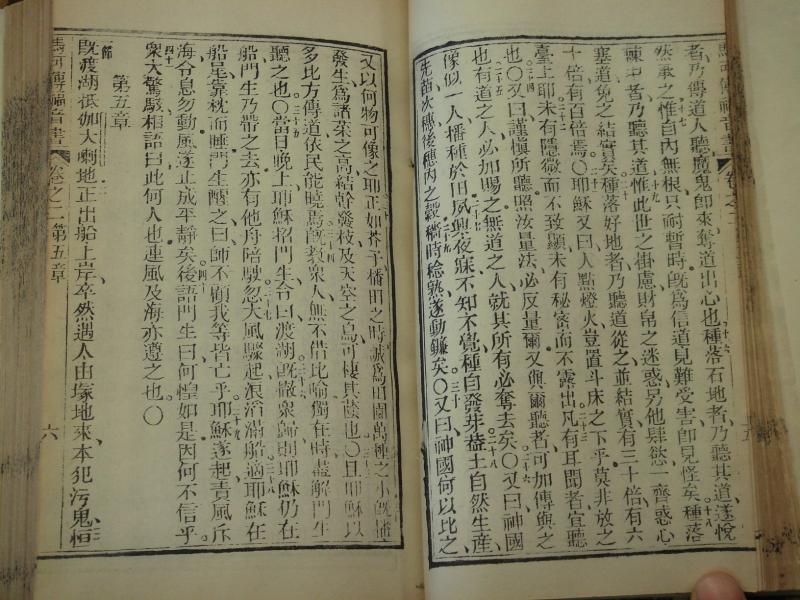 馬可傳福音書 卷之二 五
者乃傳道人聽魔鬼即來奪道出心也種落石地者乃聽其道遂悅
然承之惟自內無根只耐暫時既為信道見難受害即見怪矣種落
棘中者乃聽其道惟此世之掛慮財帛之迷惑另他肆慾一齊惑心
塞道免之結實矣種落好地者乃聽道從之並結實有三十倍有六
十倍有百倍焉〇耶穌又曰人點燈火豈置斗床之下乎莫非放之
臺上耶未有隱微而不致顯未有秘密而不露出凡有耳聞者宜聽
也〇又曰謹慎所聽照汝量法必反量爾又與爾聽者可加傳與之
也有道之人必加賜之無道之人就其所有必奪去矣〇又曰神國
像似一人播種於田夙興夜寐不知不覺種自發芽蓋土自然生產
先苗次穗後穗內之穀稱時稔熟遂動鐮矣〇又曰神國何以比之
又以何物可像之耶正如芥子播田之時誠為田園萬種之小既播
發生為諸菜之高結幹發枝及天空之鳥可棲其蔭也〇且耶穌以
多比方傳道依民能曉焉既教眾人無不借比喻獨在時盡解門生
聽之也〇當日晚上耶穌招門生令曰渡湖既徹眾歸則耶穌仍在
船門生乃帶之去亦有他舟陪駛忽大風驟起浪滔滿船適耶穌在
船尾靠枕而睡門生醒之曰師不顧我等皆亡乎耶穌遂起責風斥
海令息勿動風遂止成平靜矣後語門生曰何惶如是因何不信乎
眾大驚駭相語曰此何人也連風及海亦遵之也〇
第五章
一節 既渡湖抵伽大喇地正出船上岸卒然遇人由塚地來本犯污鬼恒
馬可傳福音書 卷之二 第五章 六